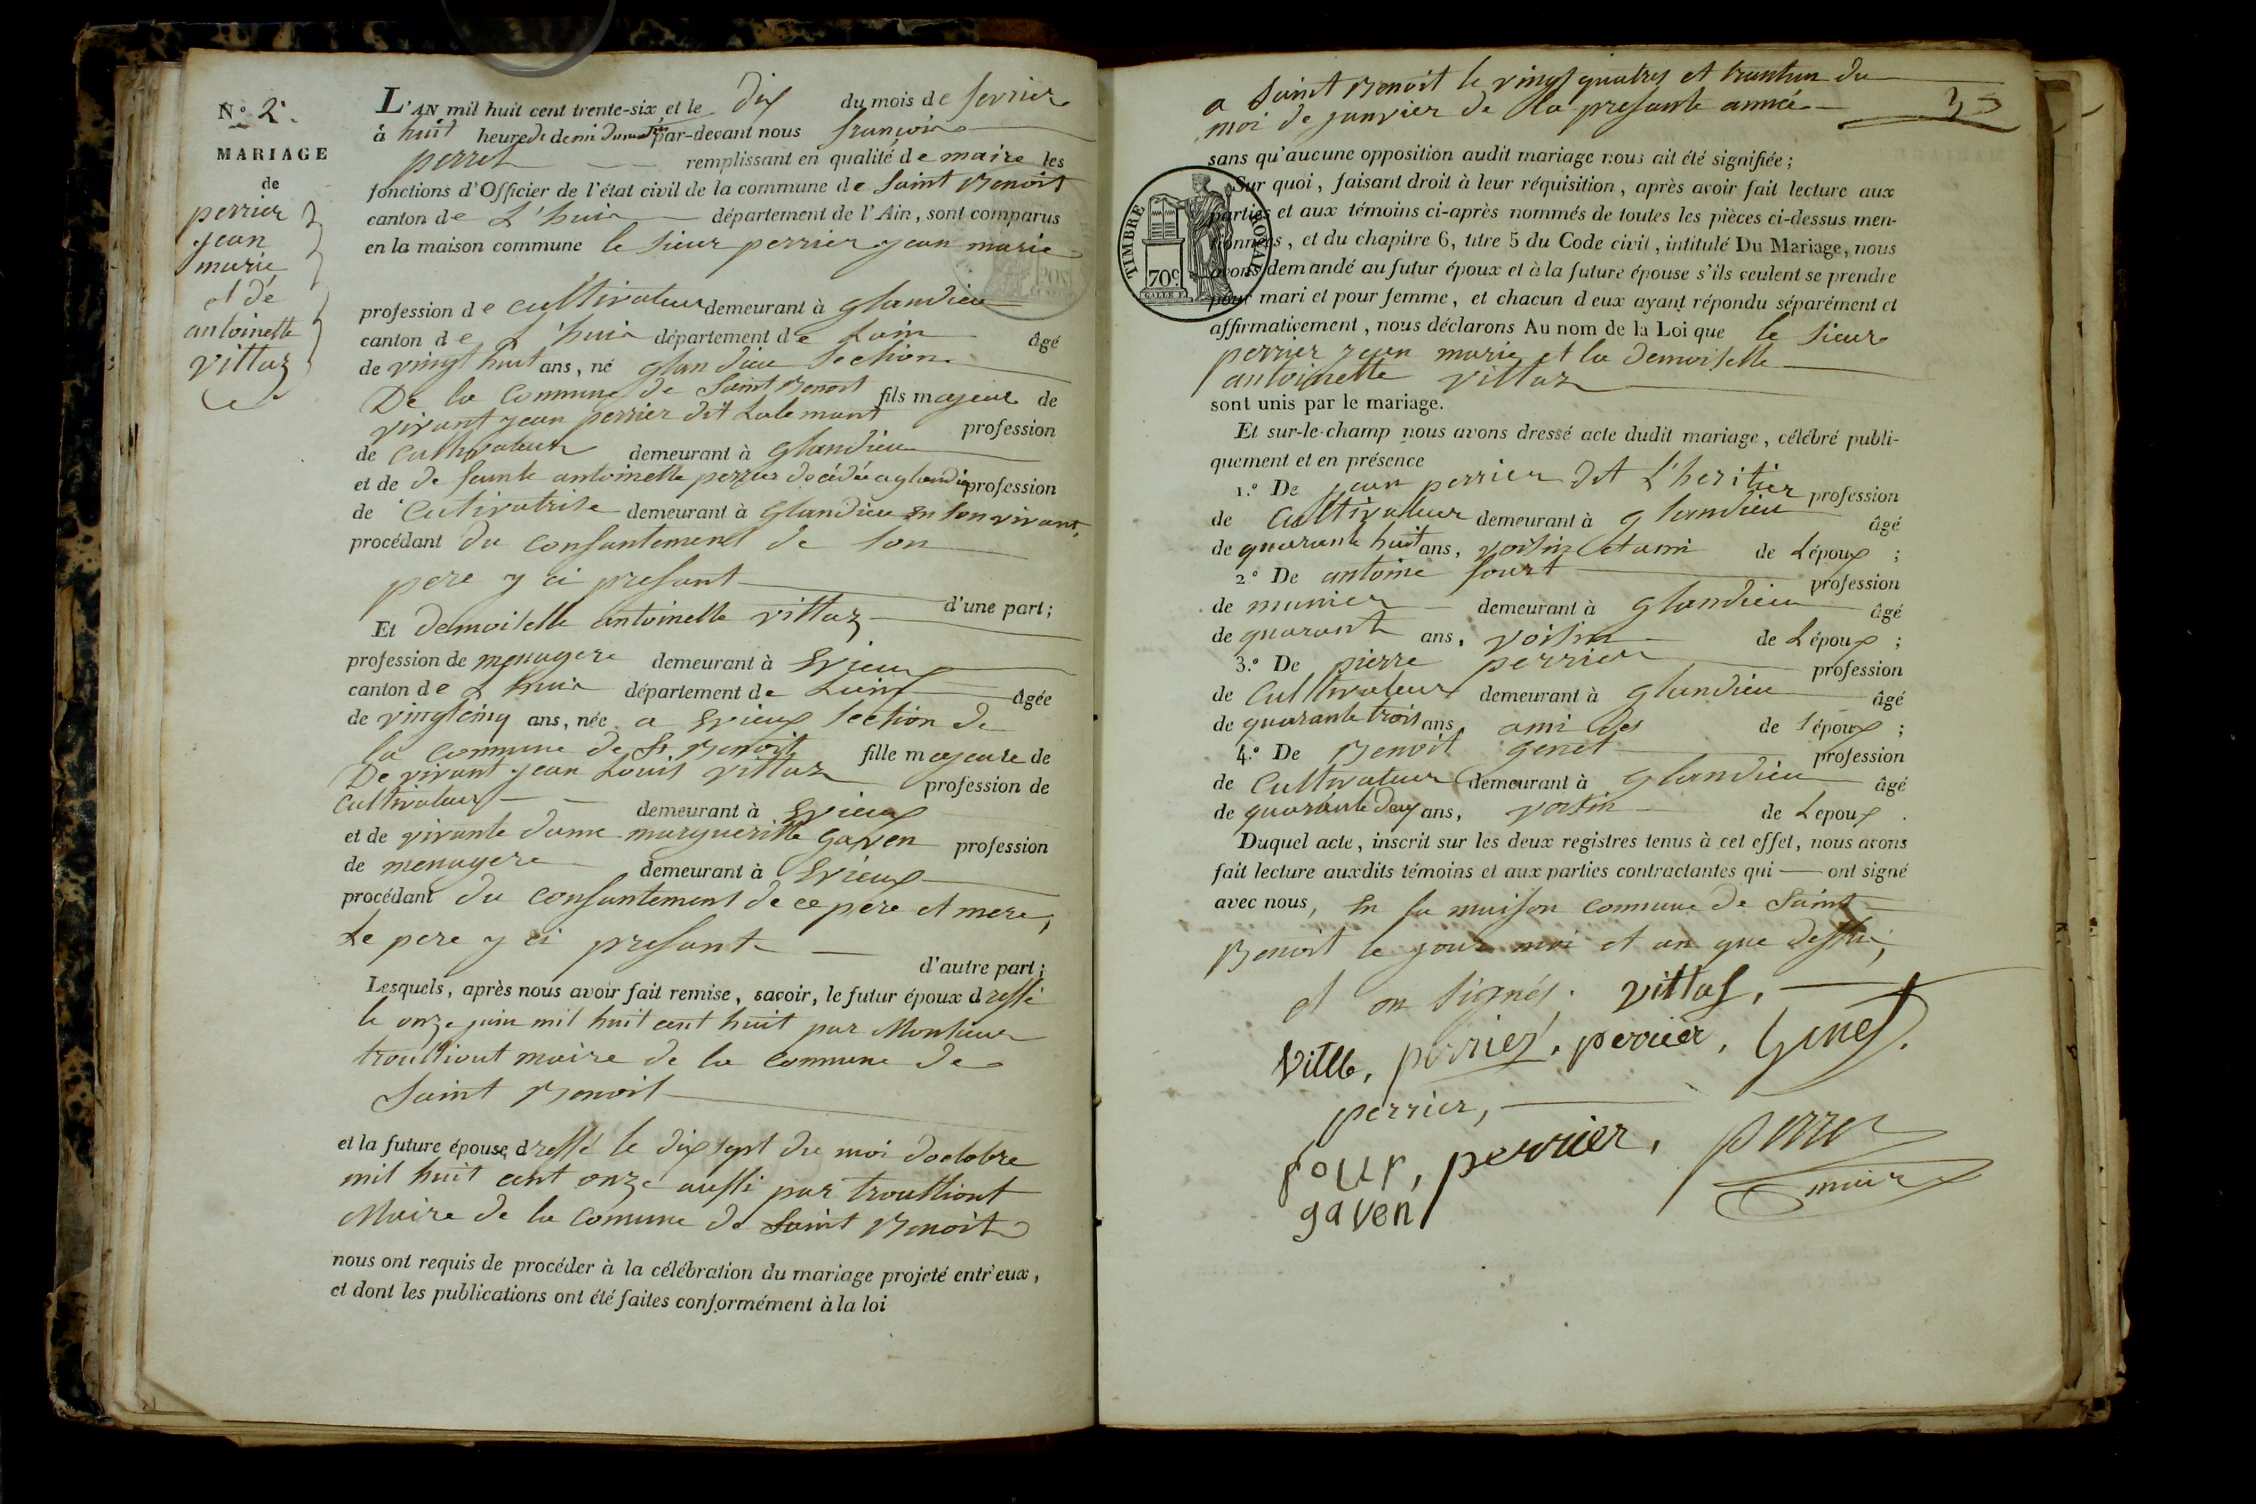 N.o 2.
MARIAGE
de
perrier
jean
marie
et de
antoinette
vittaz
L'AN mil huit cent trente-six, et le dix du mois de fevrier
à huit heure de demi du matin par-devant nous françois
perret remplissant en qualité de maire les
fonctions d'Officier de l'état civil de la commune de Saint Benoit
canton de L'huis département de l'Ain, sont comparus
en la maison commune le sieur perrier jean marie
profession de cultivateur demeurant à glandieu
canton de L'huis département de Lain âgé
de vingt huit ans, né glandieu section
De la Commune de Saint Benoit fils majeur de
vivant jean perrier dit Lalemant profession
de Cultivateur demeurant à glandieu
et de de feunte antoinette perrier décédée a glandieu profession
de Cutivatrise demeurant à Glandieu en son vivant,
procédant du consantement de son
pere y ci presant
d'une part;
Et demoiselle antoinette vittaz
profession de menagere demeurant à Evieux
canton de L'huis département de Lain âgée
de vingt cinq ans, née a Evieux section de
la commune de St Benoit fille majeure de
De vivant jean Louis vittaz profession de
Cultivateur demeurant à Evieux
et de vivante dame margueritte gaven profession
de menagere demeurant à Evieux
procédant du consantement de ce pere et mere,
Le pere y ci presant
d'autre part;
Lesquels, après nous avoir fait remise, savoir, le futur époux dressé
le onze juin mil huit cent huit par Monsieur
trouttiout maire de la commune de
Saint Benoit
et la future épouse dressé le dix sept du moi doctobre
mil huit cent onze aussi par trouttiout
Maire de la Comune de Saint Benoit
nous ont requis de procéder à la célébration du mariage projeté entr'eux,
et dont les publications ont été faites conformément à la loi
a Saint Benoit le vingt quatres et trantun du
moi de janvier de la presante année
sans qu'aucune opposition audit mariage nous ait été signifiée;
Sur quoi, faisant droit à leur réquisition, après avoir fait lecture aux
parties et aux témoins ci-après nommés de toutes les pièces ci-dessus men-
tionnées, et du chapitre 6, titre 5 du Code civil, intitulé Du Mariage, nous
avons demandé au futur époux et à la future épouse s'ils veulent se prendre
pour mari et pour femme, et chacun d eux ayant répondu séparément et
affirmativement, nous déclarons Au nom de la Loi que le sieur
perrier jean marie et la demoiselle
antoinette vittaz
sont unis par le mariage.
TIMBRE ROYAL
70c
Et sur-le-champ nous avons dressé acte dudit mariage, célébré publi-
quement et en présence
1.o De jean perrier dit L'heritier profession
de Cultivateur demeurant à glandieu âgé
de quarante huit ans, voisin et ami de Lépoux;
2o De antoine fourt profession
de munier demeurant à glandieu âgé
de quarant ans, voisin de Lépoux;
3.o De pierre perrier profession
de Cultivateur demeurant à glandieu âgé
de quarante trois ans ami des de lépoux;
4.o De Benoit genet profession
de Cultivateur demeurant à glandieu âgé
de quarante deux ans, voisin de Lepoux.
Duquel acte, inscrit sur les deux registres tenus à cet effet, nous avons
fait lecture auxdits témoins et aux parties contractantes qui ont signé
avec nous, En la maison commune de Saint
Benoit le jour moi et an que dessus,
et on signés. vittaz,
perrier, perrier, Ginet.
perrier,
four, perrier, perret
gaven maire